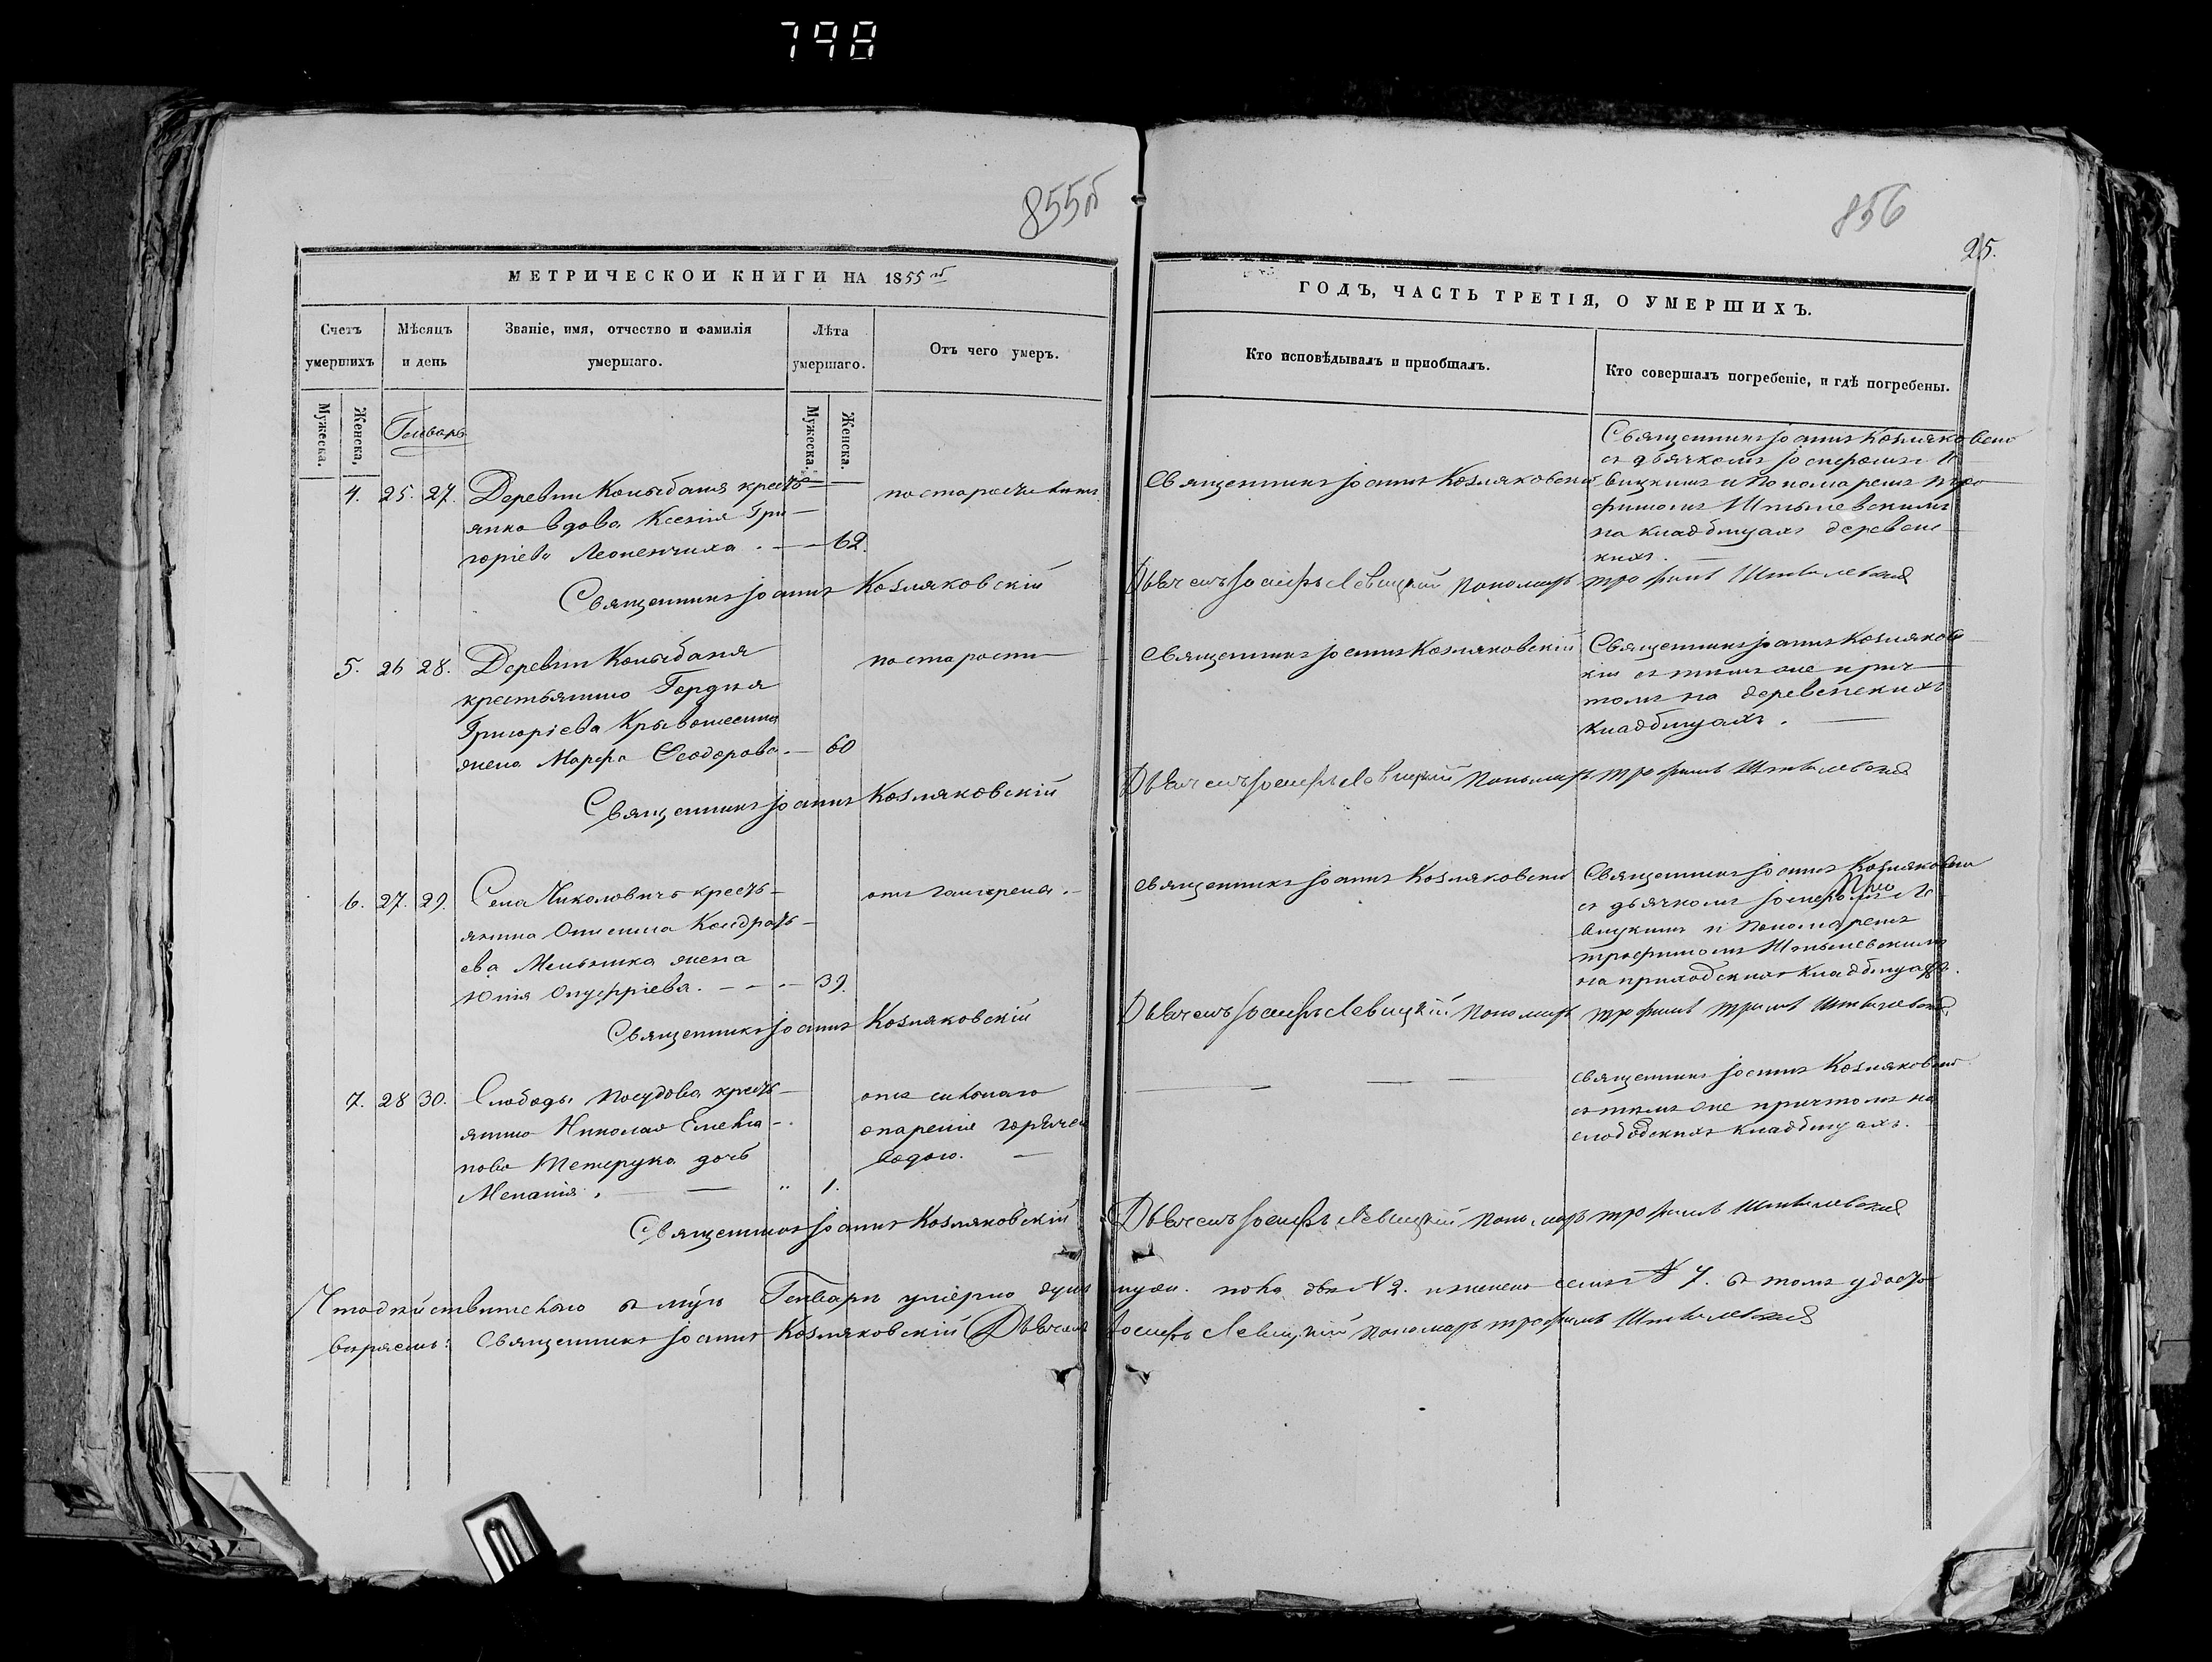 798
855об
856
25.
МЕТРИЧЕСКОЙ КНИГИ НА 1855й
Счетъ умершихъ
Мѣсяцъ и день
Званіе, имя, отчество и фамилія умершаго.
Лѣта умершаго.
Отъ чего умеръ.
Мужеска.
Женска.
Мужеска.
Женска.
Генварь
4. 25. 27. Деревни Колыбаня кресть-
янка вдова Ксенія Гри-
горіева
62.
Священникъ Іоаннъ Козляковскій
5. 26 28. Деревни Колыбаня по старости
крестьянина Гордѣя
Григоріева
жена Марфа Феодорова. — 60
Священникъ Іоаннъ Козляковскій
6. 27. 29. Села кресть- отъ гангрены.
янина Онисима Кондрать-
ева Мельника жена
Юлія Онуфріева. — 39.
Священникъ Іоаннъ Козляковскій
7. 28 30. Слободы Посудова кресть- отъ сильнаго
янина Николая опаренія горячею
Тетерука дочь водою. —
Меланія. — — „ 1.
Священникъ Іоаннъ Козляковскій
Что дѣйствительно въ Генварѣ умерло душъ
Священникъ Іоаннъ Козляковскій Дьячекъ
ГОДЪ, ЧАСТЬ ТРЕТІЯ, О УМЕРШИХЪ.
Кто исповѣдывалъ и пріобщалъ.
Кто совершалъ погребеніе, и гдѣ погребены.
Священникъ Іоаннъ Козляковскій
съ дьячкомъ Іосифомъ Ле-
Священникъ Іоаннъ Козляковскій вицкимъ и Пономаремъ Тро-
фимомъ
на кладбищахъ деревен-
скихъ.
Дьячекъ Іосифъ Левицкій Пономарь Трофимъ
Священникъ Іоаннъ Козляковскій Священникъ Іоаннъ Козляковс-
кій съ тѣмъ же прич-
томъ на деревенскихъ
кладбищахъ.
Дьячекъ Іосифъ Левицкій Пономарь Трофимъ
Священникъ Іоаннъ Козляковскій Священникъ Іоаннъ Козляковскій
съ дьячкомъ Іосифомъ Ле-
вицкимъ и Пономаремъ
Трофимомъ
на приходскихъ кладбищахъ.
Дьячекъ Іосифъ Левицкій Пономарь Трофимъ
Священникъ Іоаннъ Козляковскій
съ тѣмъ же причтомъ на
слободскихъ кладбищахъ.
Дьячекъ Іосифъ Левицкій Пономарь Трофимъ
пола два № 2. женска семь № 7. въ томъ
Іосифъ Левицкій Пономарь Трофимъ